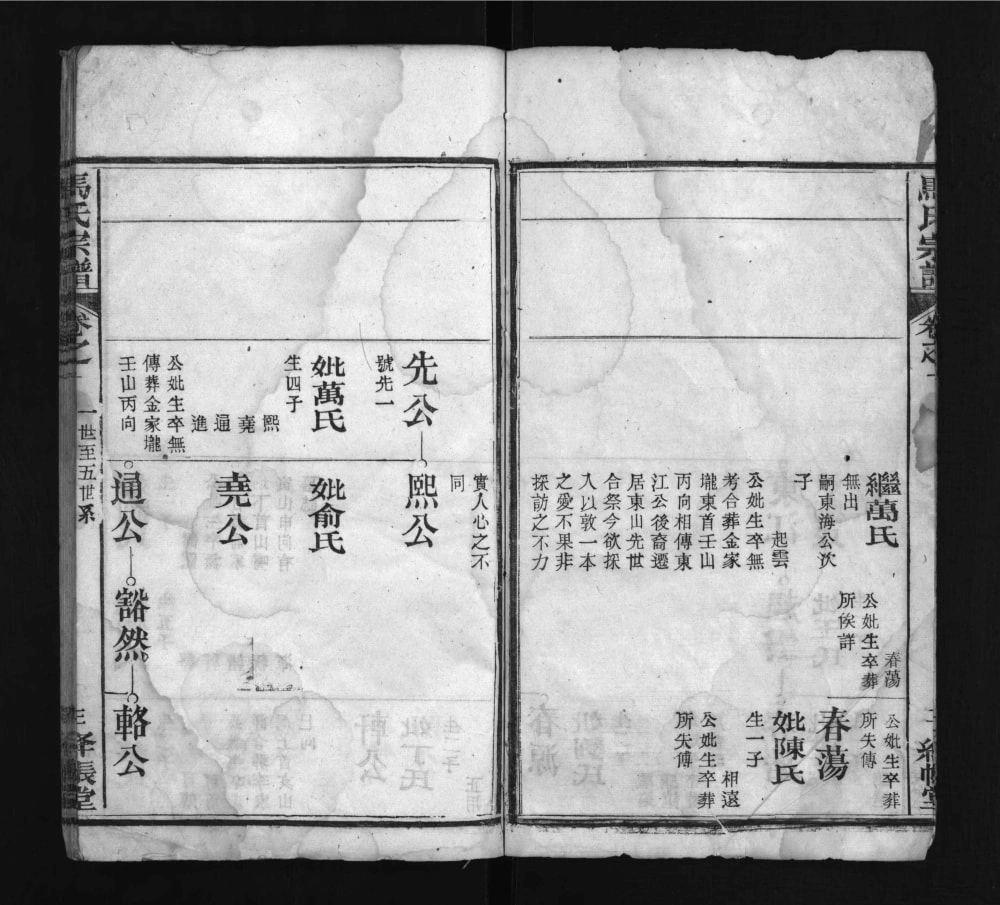 馬氏宗譜
卷之一
繼萬氏
無出
嗣東海公次
子
起雲
公妣生卒無
考合葬金家
壠東首壬山
丙向相傳東
江公後裔遷
居東山先世
合祭今欲採
入以敦一本
之愛不果非
採訪之不力
春蕩
公妣生卒葬
所俟詳
公妣生卒葬
所失傳
春蕩
妣陳氏
生一子
相遠
公妣生卒葬
所失傅
絳帳堂
實人心之不
同
先公
號先一
妣萬氏
生四子
熙
堯
通
進
公妣生卒無
傳葬金家壠
壬山丙向
熙公
妣俞氏
堯公
通公
豁然
輅公
馬氏宗譜
卷之一
一世至五世系
三
絳帳堂